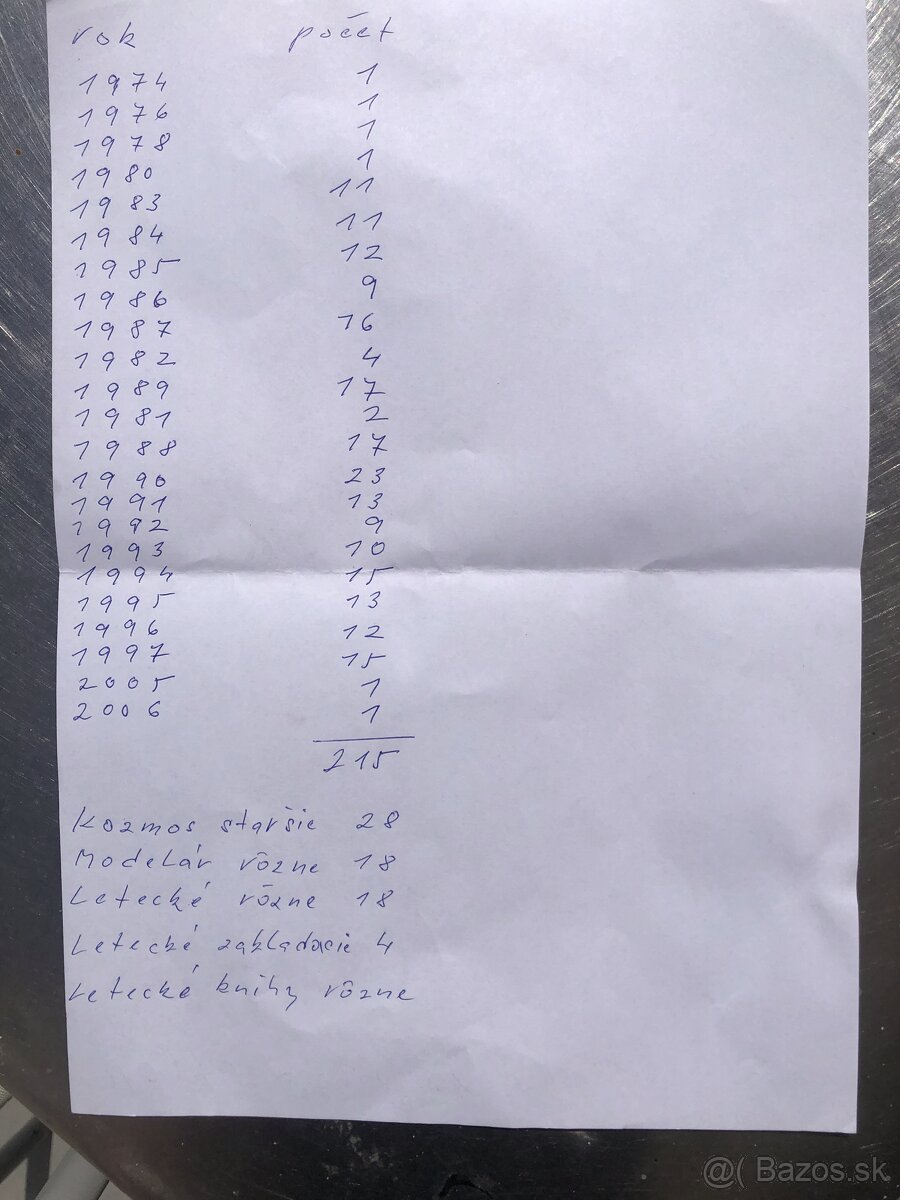 rok počet
1974 1
1976 1
1978 1
1980 1
1983 11
1984 11
1985 12
1986 9
1987 16
1982 4
1989 17
1981 2
1988 17
1990 23
1991 13
1992 9
1993 10
1994 15
1995 13
1996 12
1997 15
2005 1
2006 1
215
Kozmos staršie 28
Modelár rôzne 18
Letecké rôzne 18
Letecké zakladacie 4
Letecké knihy rôzne
@( Bazos.sk